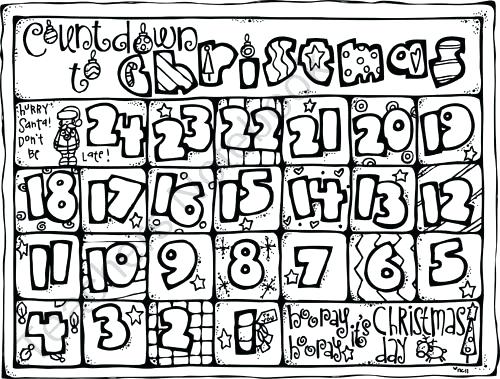 Countdown
to Christmas
hurry
Santa!
Don't
Be Late!
24 23 22 21 20 19
18 17 16 15 14 13 12
11 10 9 8 7 6 5
4 3 2 1
hooray, it's Christmas
hooray! day